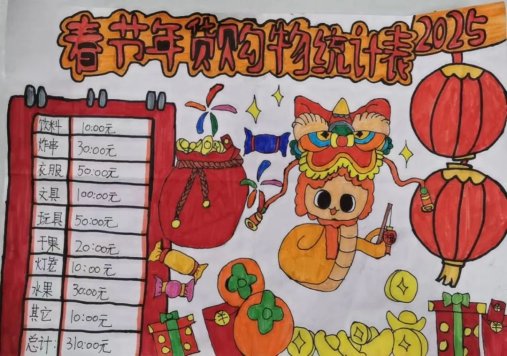 春节年货购物统计表2025
饮料 10:00元
炸串 30:00元
衣服 50:00元
文具 100:00元
玩具 50:00元
干果 20:00元
灯笼 10:00元
水果 30:00元
其它 10:00元
总计: 310:00元